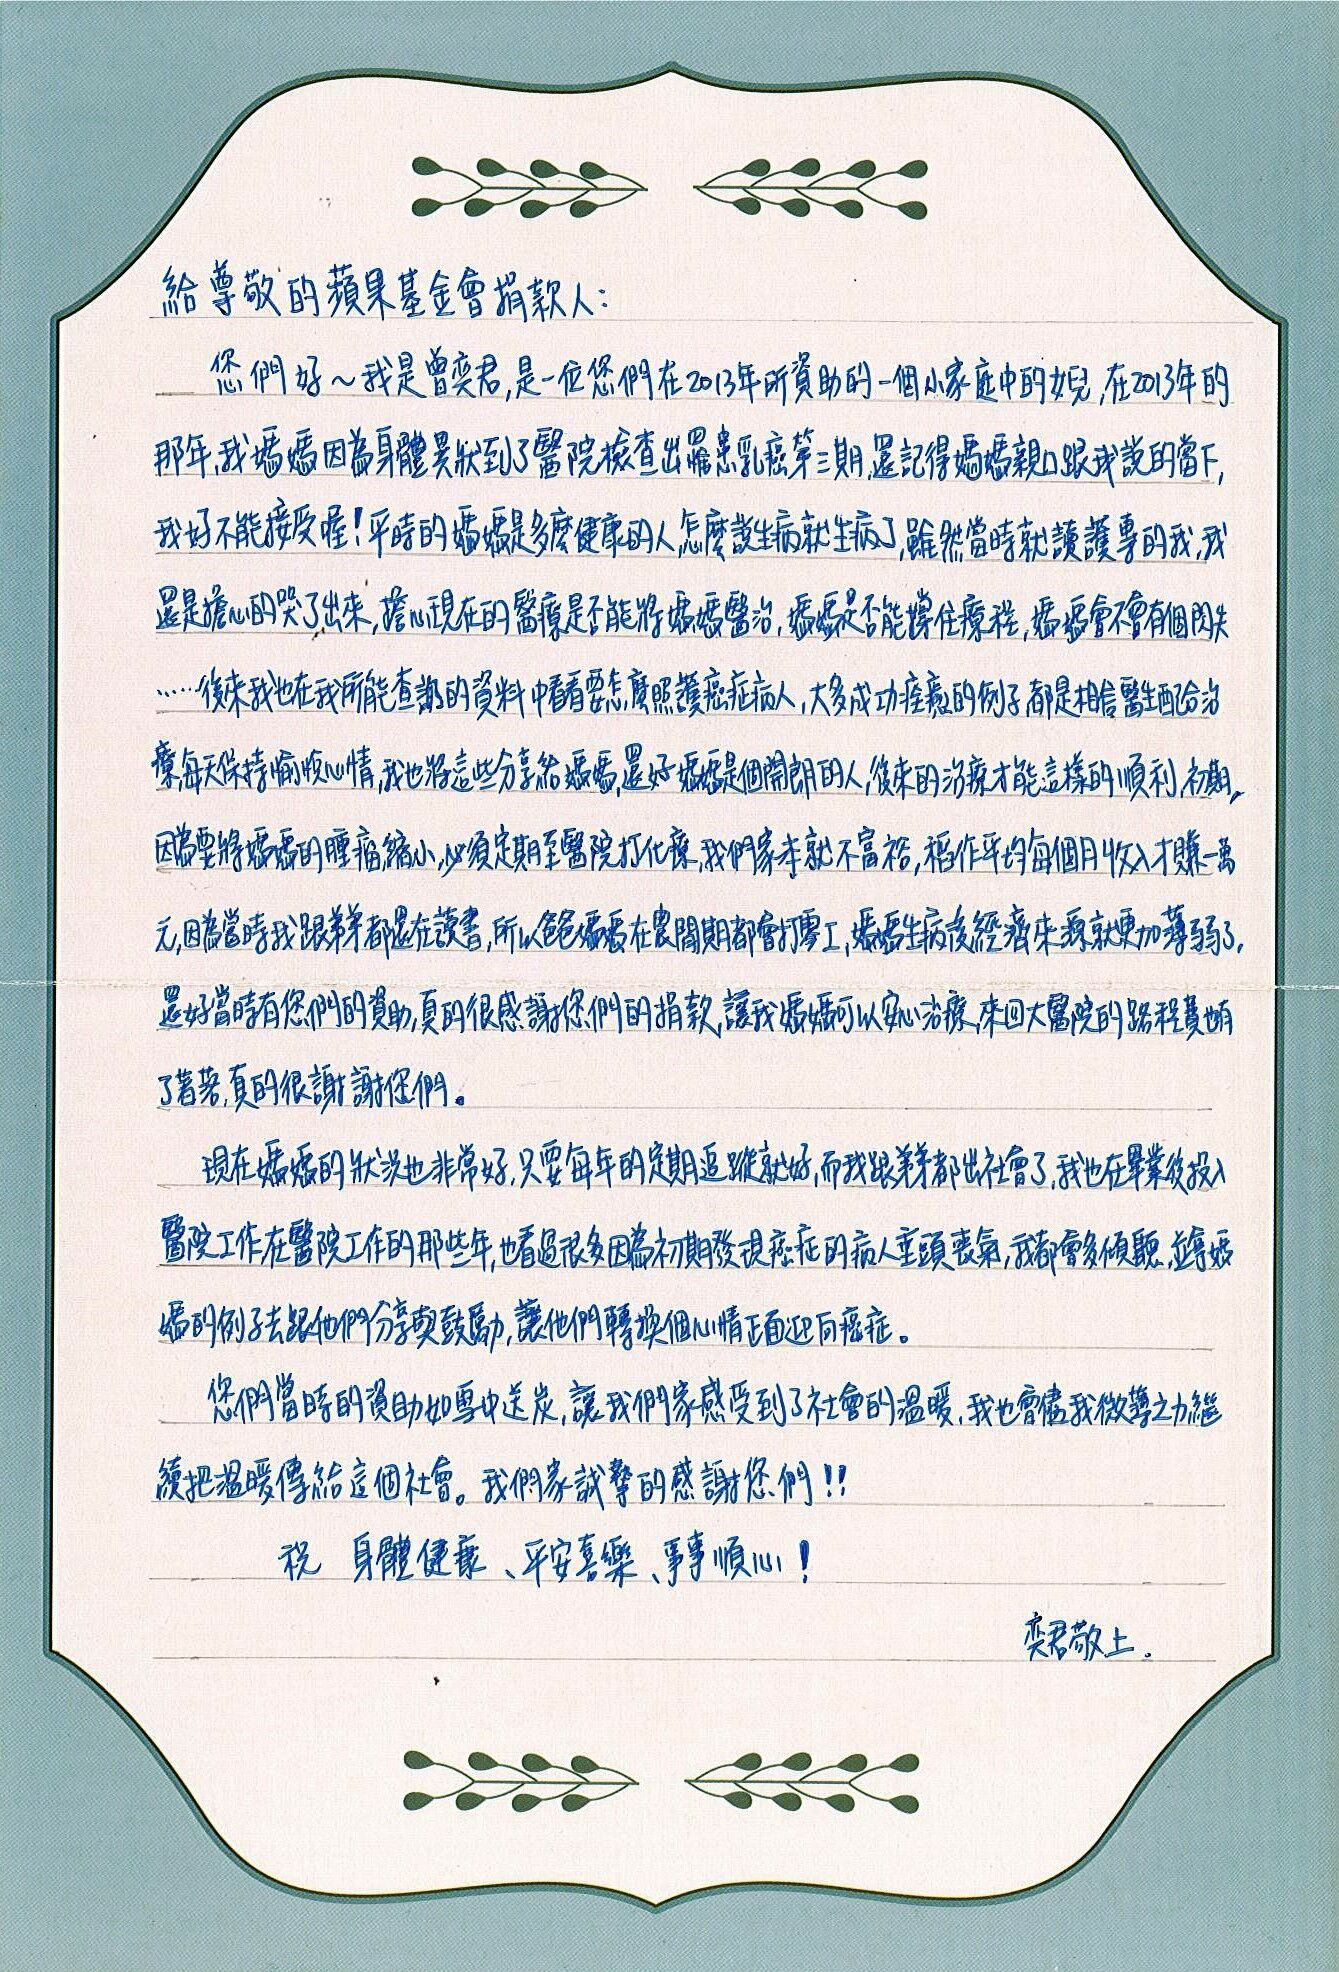 給尊敬的蘋果基金會捐款人：
您們好～我是曾奕君，是一位您們在2013年所資助的一個小家庭中的女兒，在2013年的
那年，我媽媽因為身體異狀到了醫院檢查出罹患乳癌第三期，還記得媽媽親口跟我說的當下，
我好不能接受喔！平時的媽媽是多麼健康的人，怎麼說生病就生病了，雖然當時就讀護專的我，我
還是擔心的哭了出來，擔心現在的醫療是否能將媽媽醫治，媽媽是否能撐住療程，媽媽會不會有個閃失
……後來我也在我所能查詢的資料中看看要怎麼照護癌症病人，大多成功痊癒的例子都是相信醫生配合治
療，每天保持愉悅心情，我也將這些分享給媽媽，還好媽媽是個開朗的人，後來的治療才能這樣的順利，初期，
因為要將媽媽的腫瘤縮小，必須定期至醫院打化療，我們家本就不富裕，稻作平均每個月收入才賺一萬
元，因為當時我跟弟弟都還在讀書，所以爸爸媽媽在農閒期都會打零工，媽媽生病後經濟來源就更加薄弱了，
還好當時有您們的資助，真的很感謝您們的捐款，讓我媽媽可以安心治療，來回大醫院的路程費也有
了著落，真的很謝謝您們。
現在媽媽的狀況也非常好，只要每年的定期追蹤就好，而我跟弟弟都出社會了，我也在畢業後投入
醫院工作，在醫院工作的那些年，也看過很多因為初期發現癌症的病人垂頭喪氣，我都會多傾聽，並拿媽
媽的例子去跟他們分享與鼓勵，讓他們轉換個心情正面迎向癌症。
您們當時的資助如雪中送炭，讓我們家感受到了社會的溫暖，我也會儘我微薄之力繼
續把溫暖傳給這個社會。我們家誠摯的感謝您們！！
祝 身體健康、平安喜樂、事事順心！
奕君敬上.